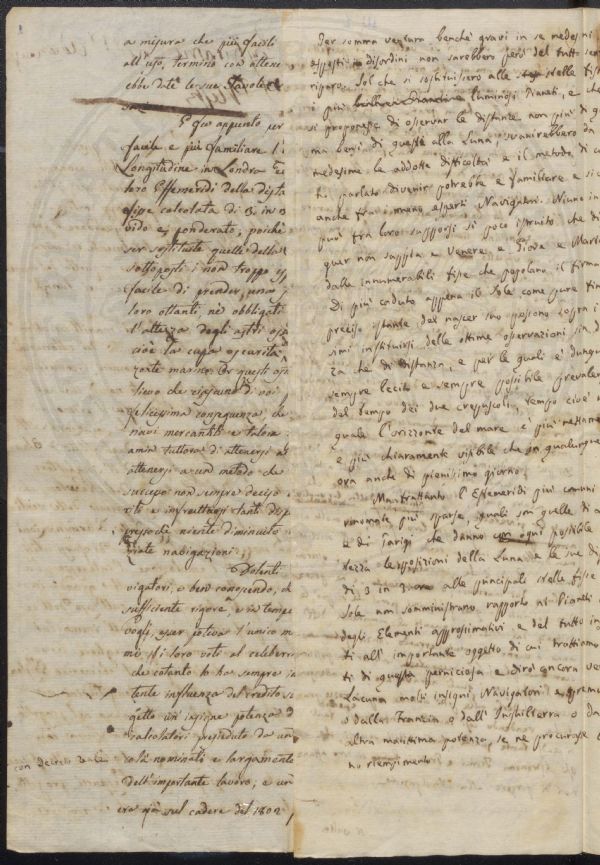 a misura che più facili
all'uso, termino con
ebbe date le sue Tavole
E qui appunto per
facile e più familiare l'
Longitudine in Londra
loro Effemeridi della dista
fisse calcolata di 3 in 3
vido e ponderato, poichè
ser sostituite quelle della
sottoposti i non troppo
facile di prender, uno
loro ottanti, nè obbligati
l'altezza degli astri
cioè la cupa oscurità
zonte marino. Or questi
lievo che ciascuno di voi
felicissima conseguenza che
navi mercantili e talora
ancora tuttora di attenersi
attenersi a un metodo che
successo non sempre deciso
riti e infruttuosi tanti
presso che niente diminuito
navigazioni.
Dolenti
vigatori, e ben conoscendo, ch
sufficiente rigore, e in tempo
vogli, esser poteva l'unico m
i loro voti al celeberri
che cotanto ha sempre in
tente influenza del credito
getto un insigne potenza d
calcolatori presieduto da un
con decreto nominati e largamente
dell'importante lavoro; e
era già sul cadere del 1802
Per somma ventura benchè gravi in se medesmi
esposti disordini non sarebbero però del tutto sen
riparo. Sol che si sostituissero alle stelle fis
i più luminosi Pianeti, e che
si proponesse di osservar le distanze non più di q
ma bensì di queste alla Luna, svanirebbero da
medesime le addotte difficoltà e il metodo, di cu
ho parlato divenir potrebbe e familiare e sic
anche fra i meno esperti Navigatori. Niuno in
può fra loro supporsi sì poco istruito che di
guer non sappia e Venere e Giove e Marte
dalle innumerabili fisse che popolano il firma
Di più caduto appena il Sole come pure fin
preciso istante del nascer suo possono sopra i
simi instituirsi delle ottime osservazioni sia d
za che di distanza, e per le quali è dunque
sempre lecito e sempre possibile prevaler
del tempo dei due crepuscoli, tempo cioè
quale l'orizzonte del mare è più nettamen
e più chiaramente visibile che in qualunque
ora anche di pienissimo giorno.
Ma frattanto l'Effemeridi più comuni
rinomate più sparse, quali son quelle di
e di Parigi che danno con ogni possibile
tezza le posizioni della Luna e le sue dis
di 3 in 3 ore alle principali stelle fisse
Sole non somministrano rapporto ai Pianeti
degli Elementi approssimativi e del tutto in
ti all'importante oggetto, di cui trattiamo
ti di questa perniciosa e dirò ancora ver
Lacuna molti insigni Navigatori e
o dalla Francia o dall'Inghilterra o da
altra marittima potenza, se ne procurasse
no riempimento.